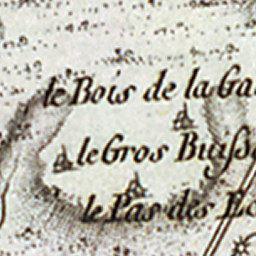 le Bois de la Ga
le Gros Buisso
le Pas des Ec